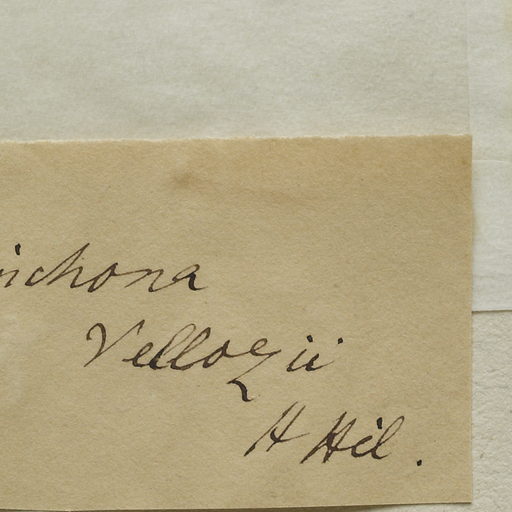 inchona
Vellozii
H Hil.